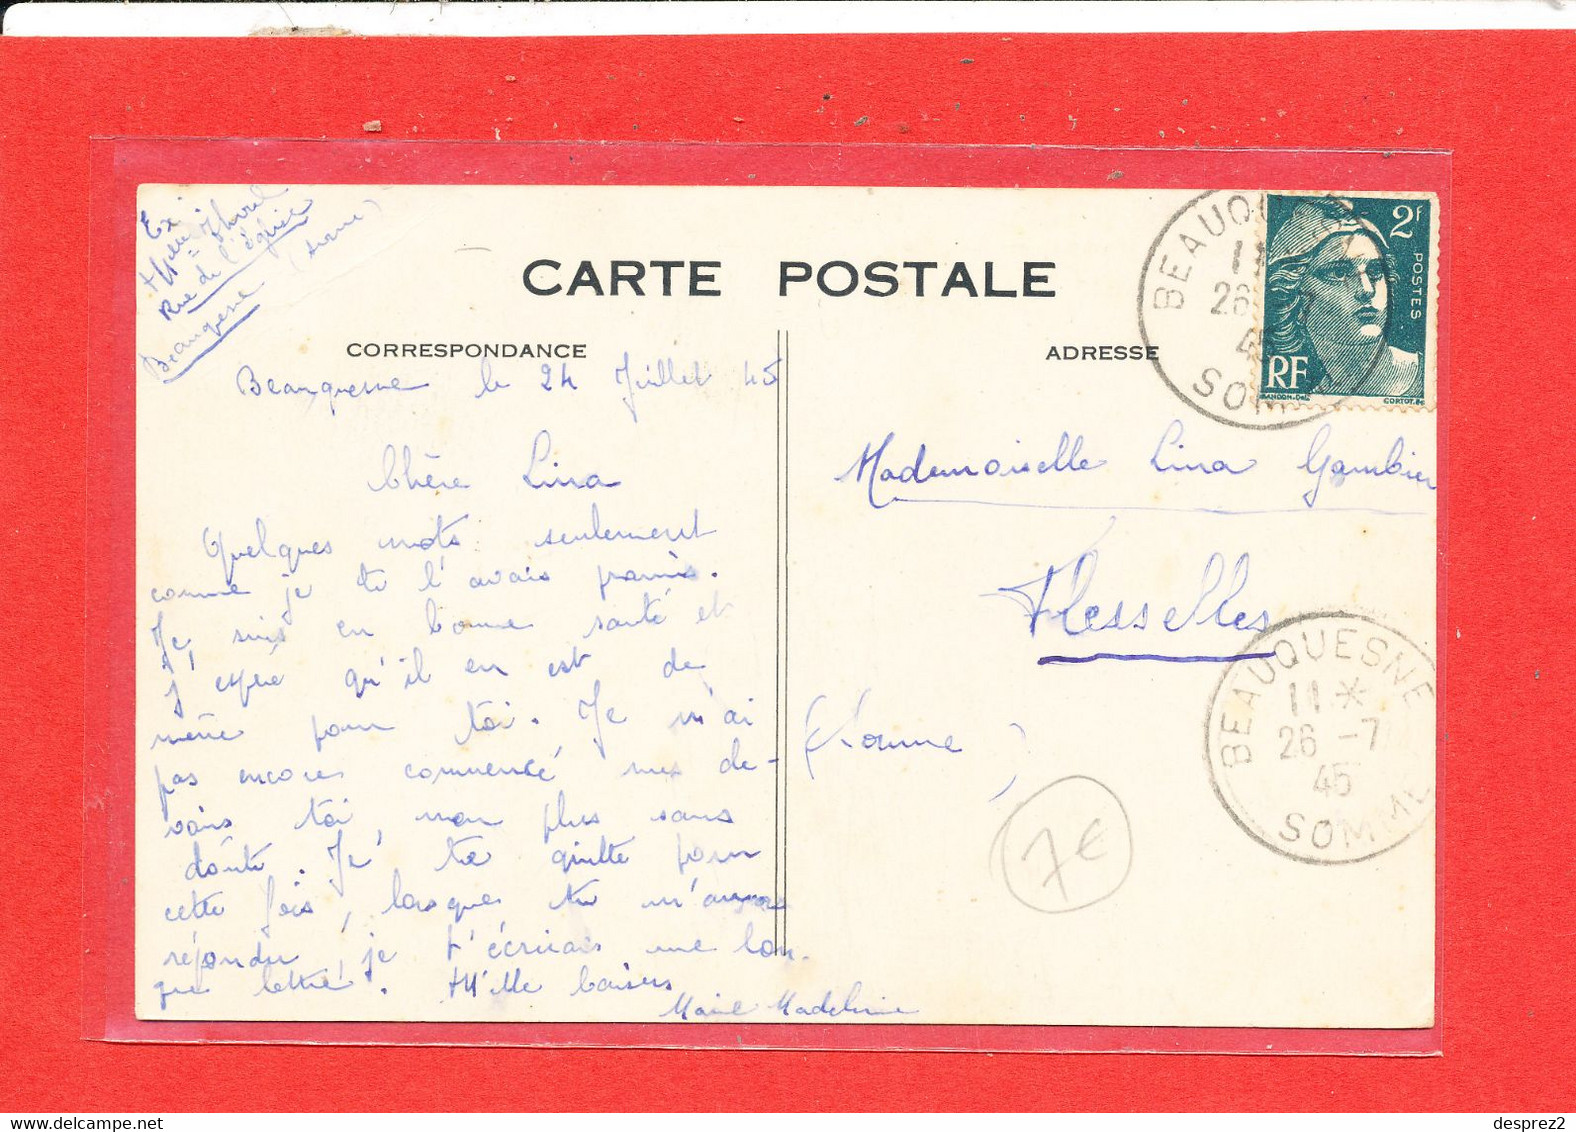 Ex:
Melle
Rue de l'église
Beauquesne (Somme)
CARTE POSTALE
CORRESPONDANCE
ADRESSE
Beauquesne le 24 Juillet 45
Chère Lina
Quelques mots seulement
comme je te l'avais promis.
Je suis en bonne santé et
j'espère qu'il en est de
même pour toi. Je n'ai
pas encores commencé mes de-
voirs toi, non plus sans
doute. Je te quitte pour
cette fois, lorsque tu m'auras
répondu, je t'écrirais une lon-
gue lettre. Mille baisers
Marie Madeleine
Mademoiselle Lina Gambier
Flesselles
(Somme)
7€
2F
POSTES
RF
GANDON-DEL.
CORTOT.SC
BEAUQUESNE
11
26 -7
45
SOMME
BEAUQUESNE
11 *
26 -7
45
SOMME
desprez2